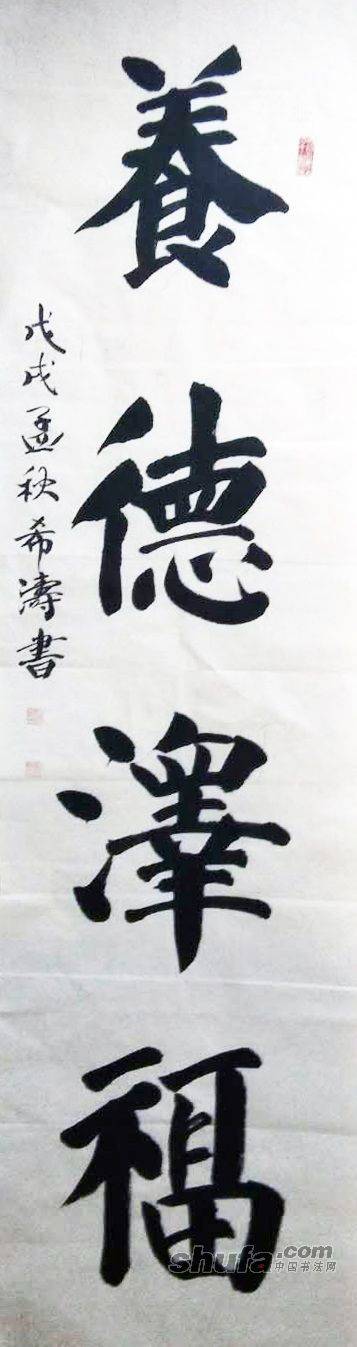 養德澤福
戊戌孟秋希濤書
shufa.com
中国书法网